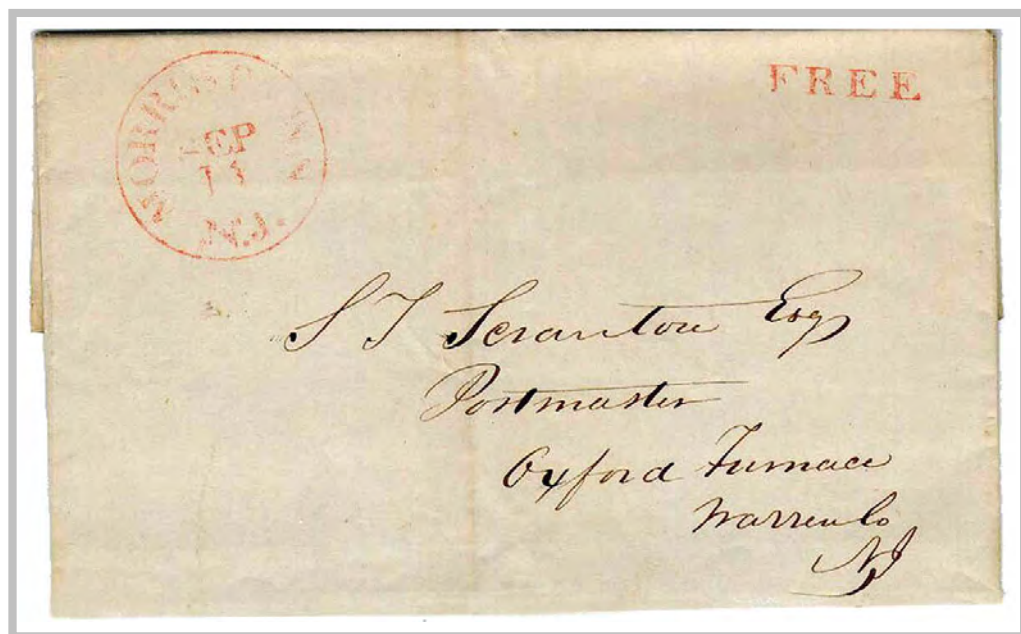 MORRISTOWN
SEP
N.J.
FREE
S T Scranton Esq
Postmaster
Oxford Furnace
Warren Co
NJ